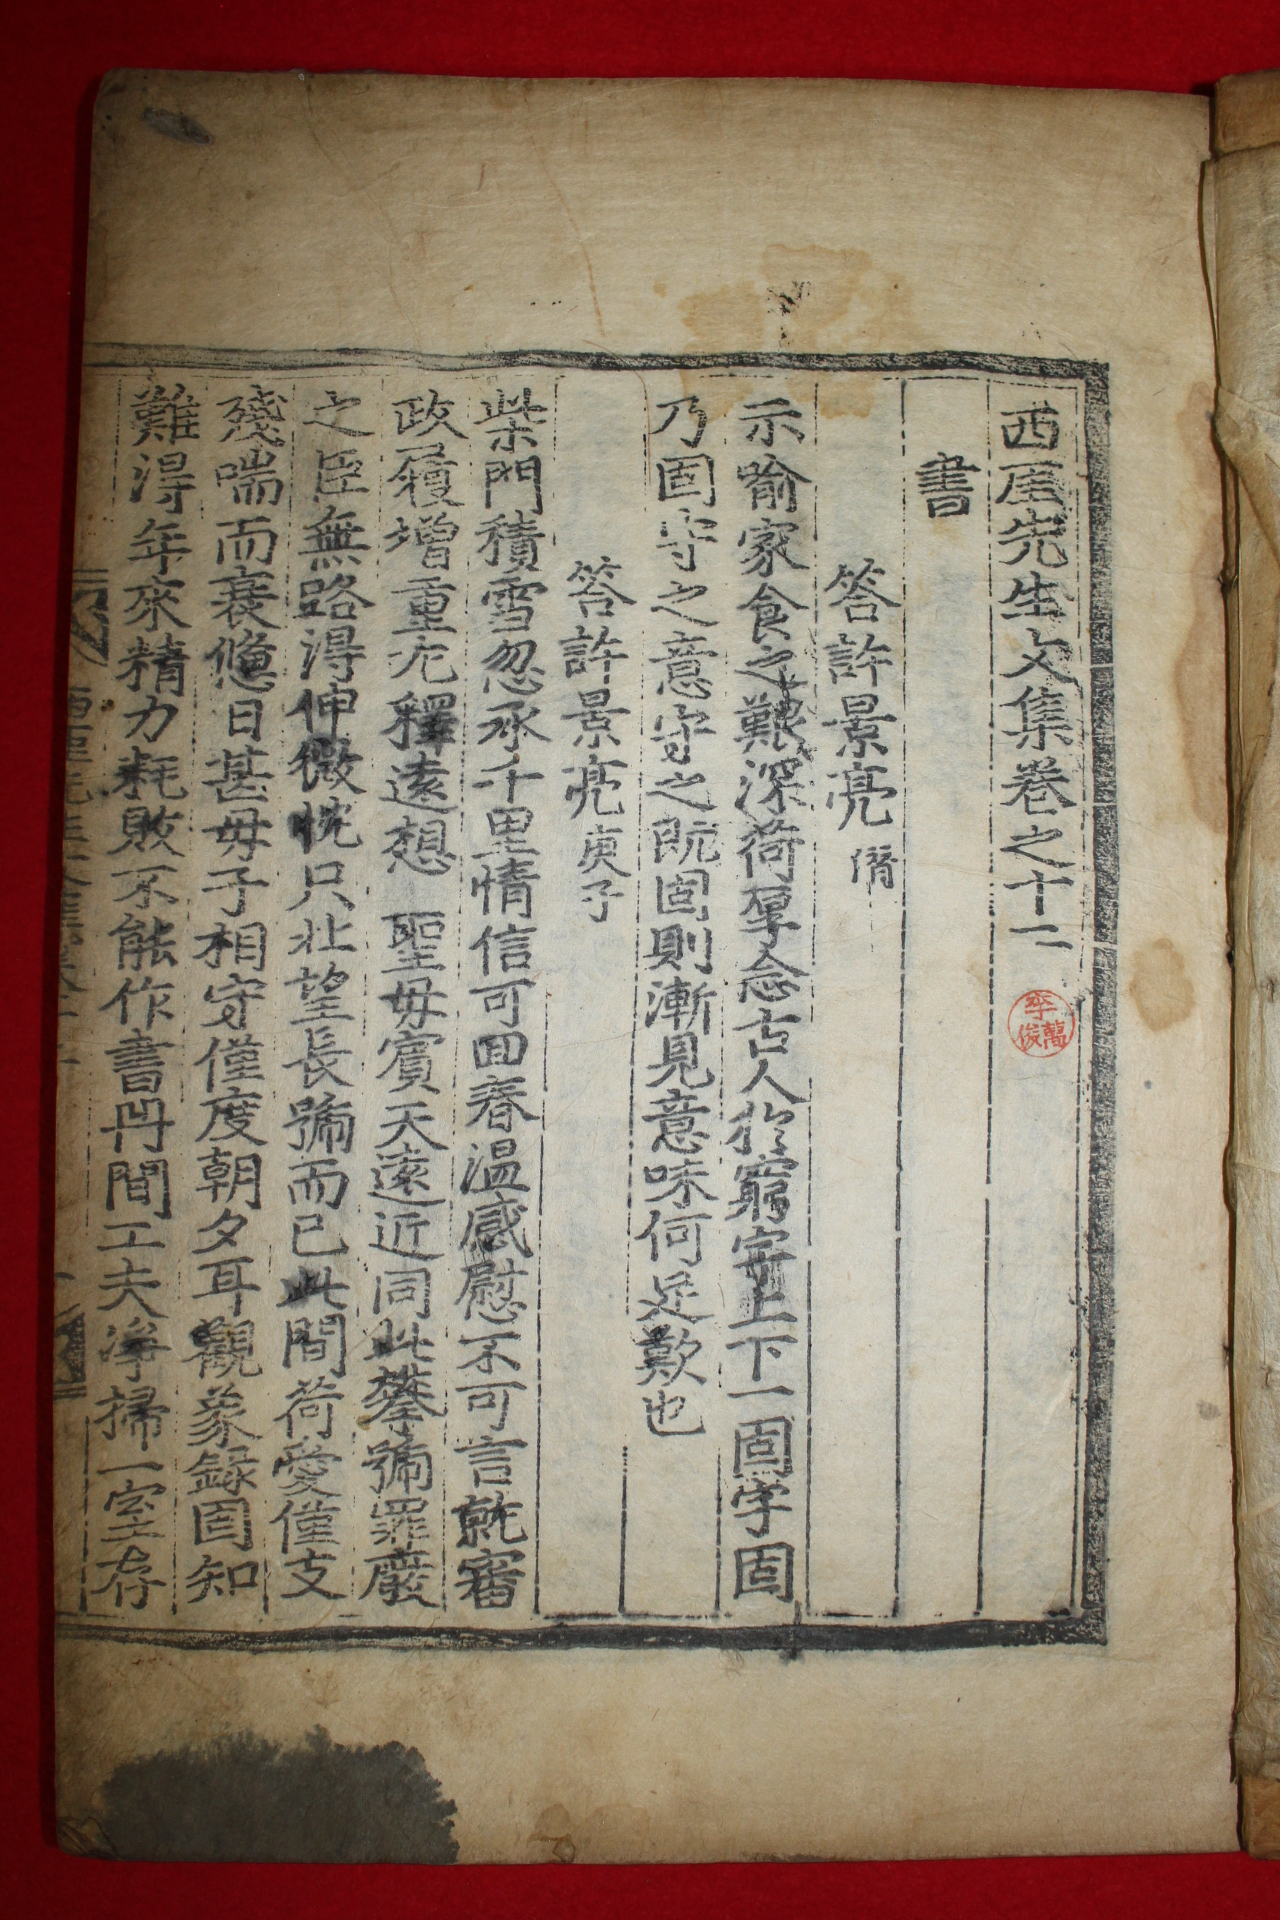 西厓先生文集卷之十二
李萬俊
書
答許景亮 僩
示喩家食之艱深荷㝡念古人於窮字上下一固字固
乃固守之意守之旣固則漸見意味何足歎也
答許景亮 庚子
柴門積雪忽承千里情信可回春溫感慰不可言就審
政履增重尤釋遠想 聖母賓天遠近同此攀號罪廢
之臣無路得伸微忱只北望長號而已此間荷愛僅支
殘喘而衰憊日甚母子相守僅度朝夕耳觀象錄固知
難得年來精力耗敗不能作書冊間工夫淨掃一室存